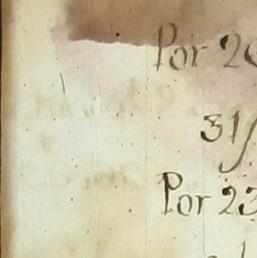 Por 20
31/
Por 23